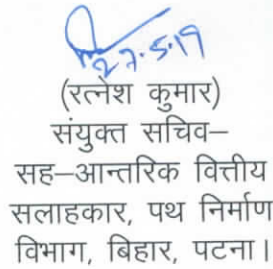 27.5.19
(रत्नेश कुमार)
संयुक्त सचिव–
सह–आन्तरिक वित्तीय
सलाहकार, पथ निर्माण
विभाग, बिहार, पटना।